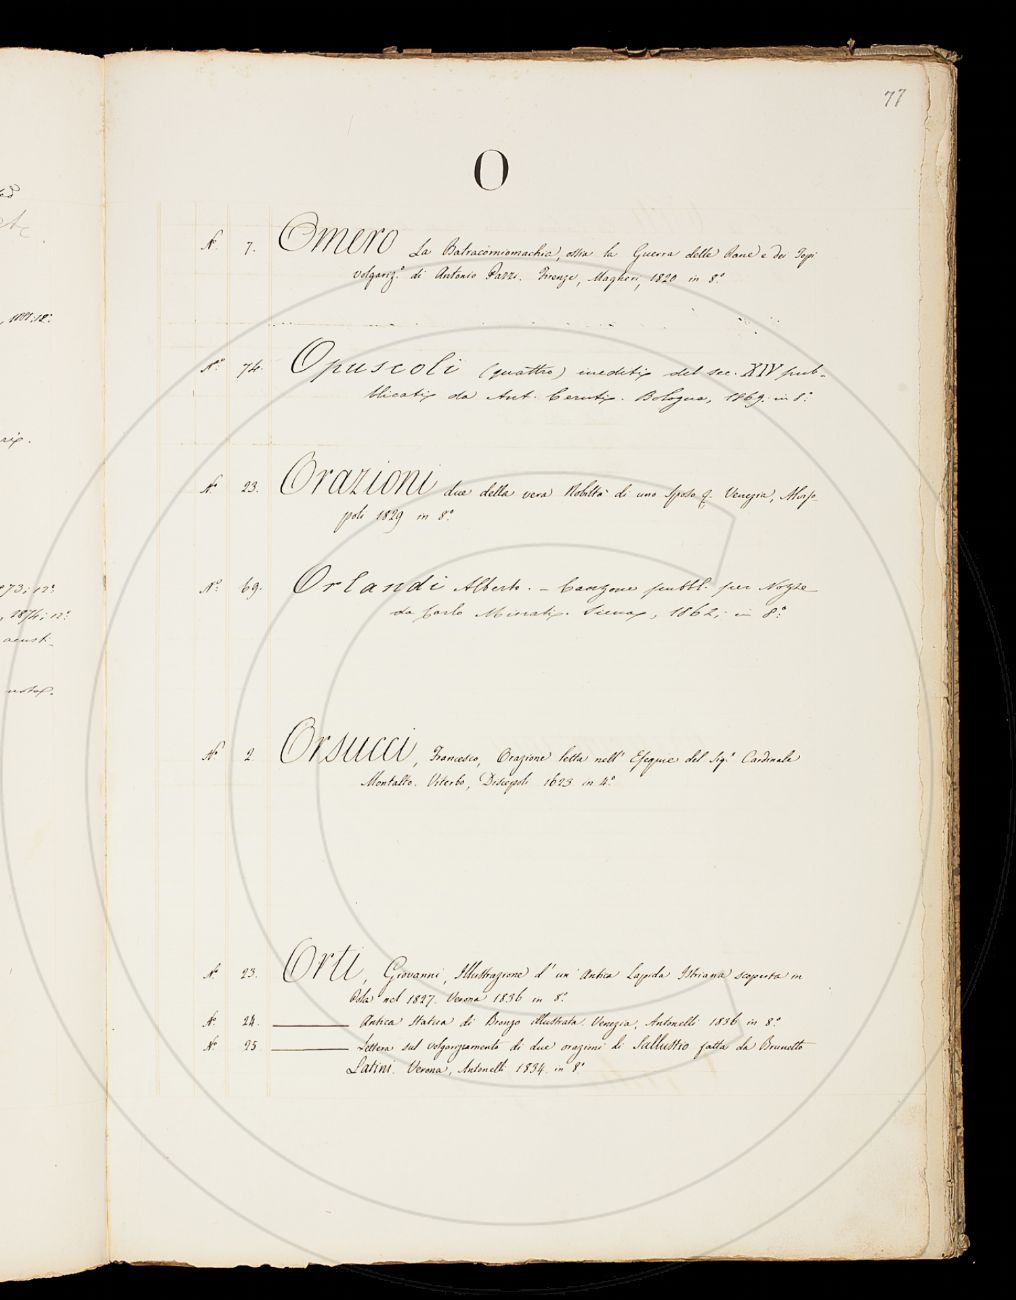 77
O
N.° 7. Omero La Batracomiomachia, ossia la Guerra delle Rane e dei Topi
volgariz.° di Antonio Pazzi. Firenze, Magheri, 1820 in 8.°
N.° 74. Opuscoli (quattro) inediti del sec. XIV pub-
blicati da Ant. Ceruti. Bologna, 1869. in 8.°
N.° 23. Orazioni due della vera Nobiltà di uno Sposo &. Venezia, Miss-
poli 1829 in 8.°
N.° 69. Orlandi Alberto. – Canzone pubbl. per Nozze
da Carlo Minati. Siena, 1862; in 8.°
N.° 2 Orsucci, Francesco, Orazione letta nell' Esequie del Sig.r Cardinale
Montalto. Viterbo, Discepoli 1623 in 4.°
N.° 23. Orti, Giovanni, Illustrazione d' un' Antica Lapida Istriana scoperta in
Pola nel 1827. Verona 1836 in 8.°
N.° 24. ——— Antica Statua di Bronzo illustrata. Venezia, Antonelli 1836 in 8.°
N.° 25 ——— Lettera sul volgarizzamento di due orazioni di Sallustio fatta da Brunetto
Latini. Verona, Antonelli 1834. in 8.°